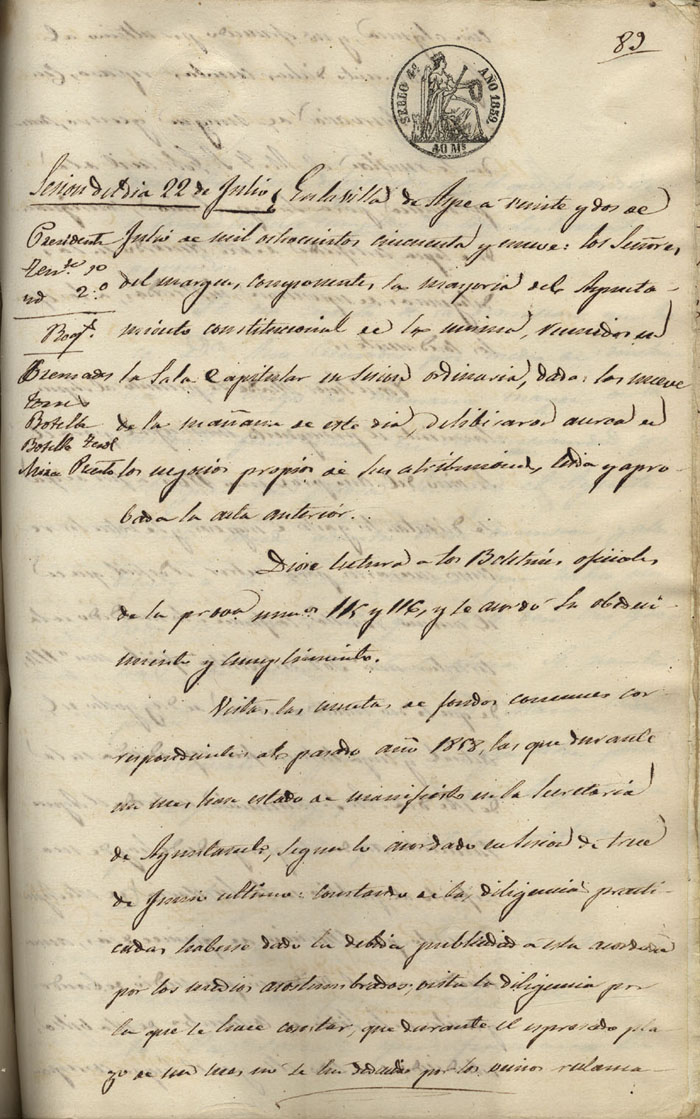 89
SELLO 4º AÑO 1859.
40 Ms
Sesion del dia 22 de Julio
En la villa de Aspe a veinte y dos de
Presidente
Julio de mil ochocientos cincuenta y nueve: los Señores
Tente 1º
del margen, componentes la mayoria del Ayunta-
id 2º
miento constitucional de la misma, reunidos en
Regs.
la Sala Capitular en sesion ordinaria, dadas las nueve
Cremades
de la mañana de este dia, deliberaron acerca de
Botella
Botella
los negocios propios de sus atribuciones, leida y apro-
Mira
bada la acta anterior.
Diose lectura a los Boletines oficiales
de la prova numos 115 y 116, y se acordó su obedeci-
miento y cumplimiento.
Vistas las cuentas de fondos comunes cor-
respondientes al pasado año 1858, las que durante
un mes han estado de manifiesto en la Secretaria
de Ayuntamto, segun lo acordado en sesion de trece
de Junio ultimo: constando de las diligencias practi-
cadas haberse dado la debida publicidad a este acuerdo
por los medios acostumbrados, vista la diligencia por
la que se hace constar, que durante el espresado pla-
zo de un mes no se ha por los vecinos reclama-